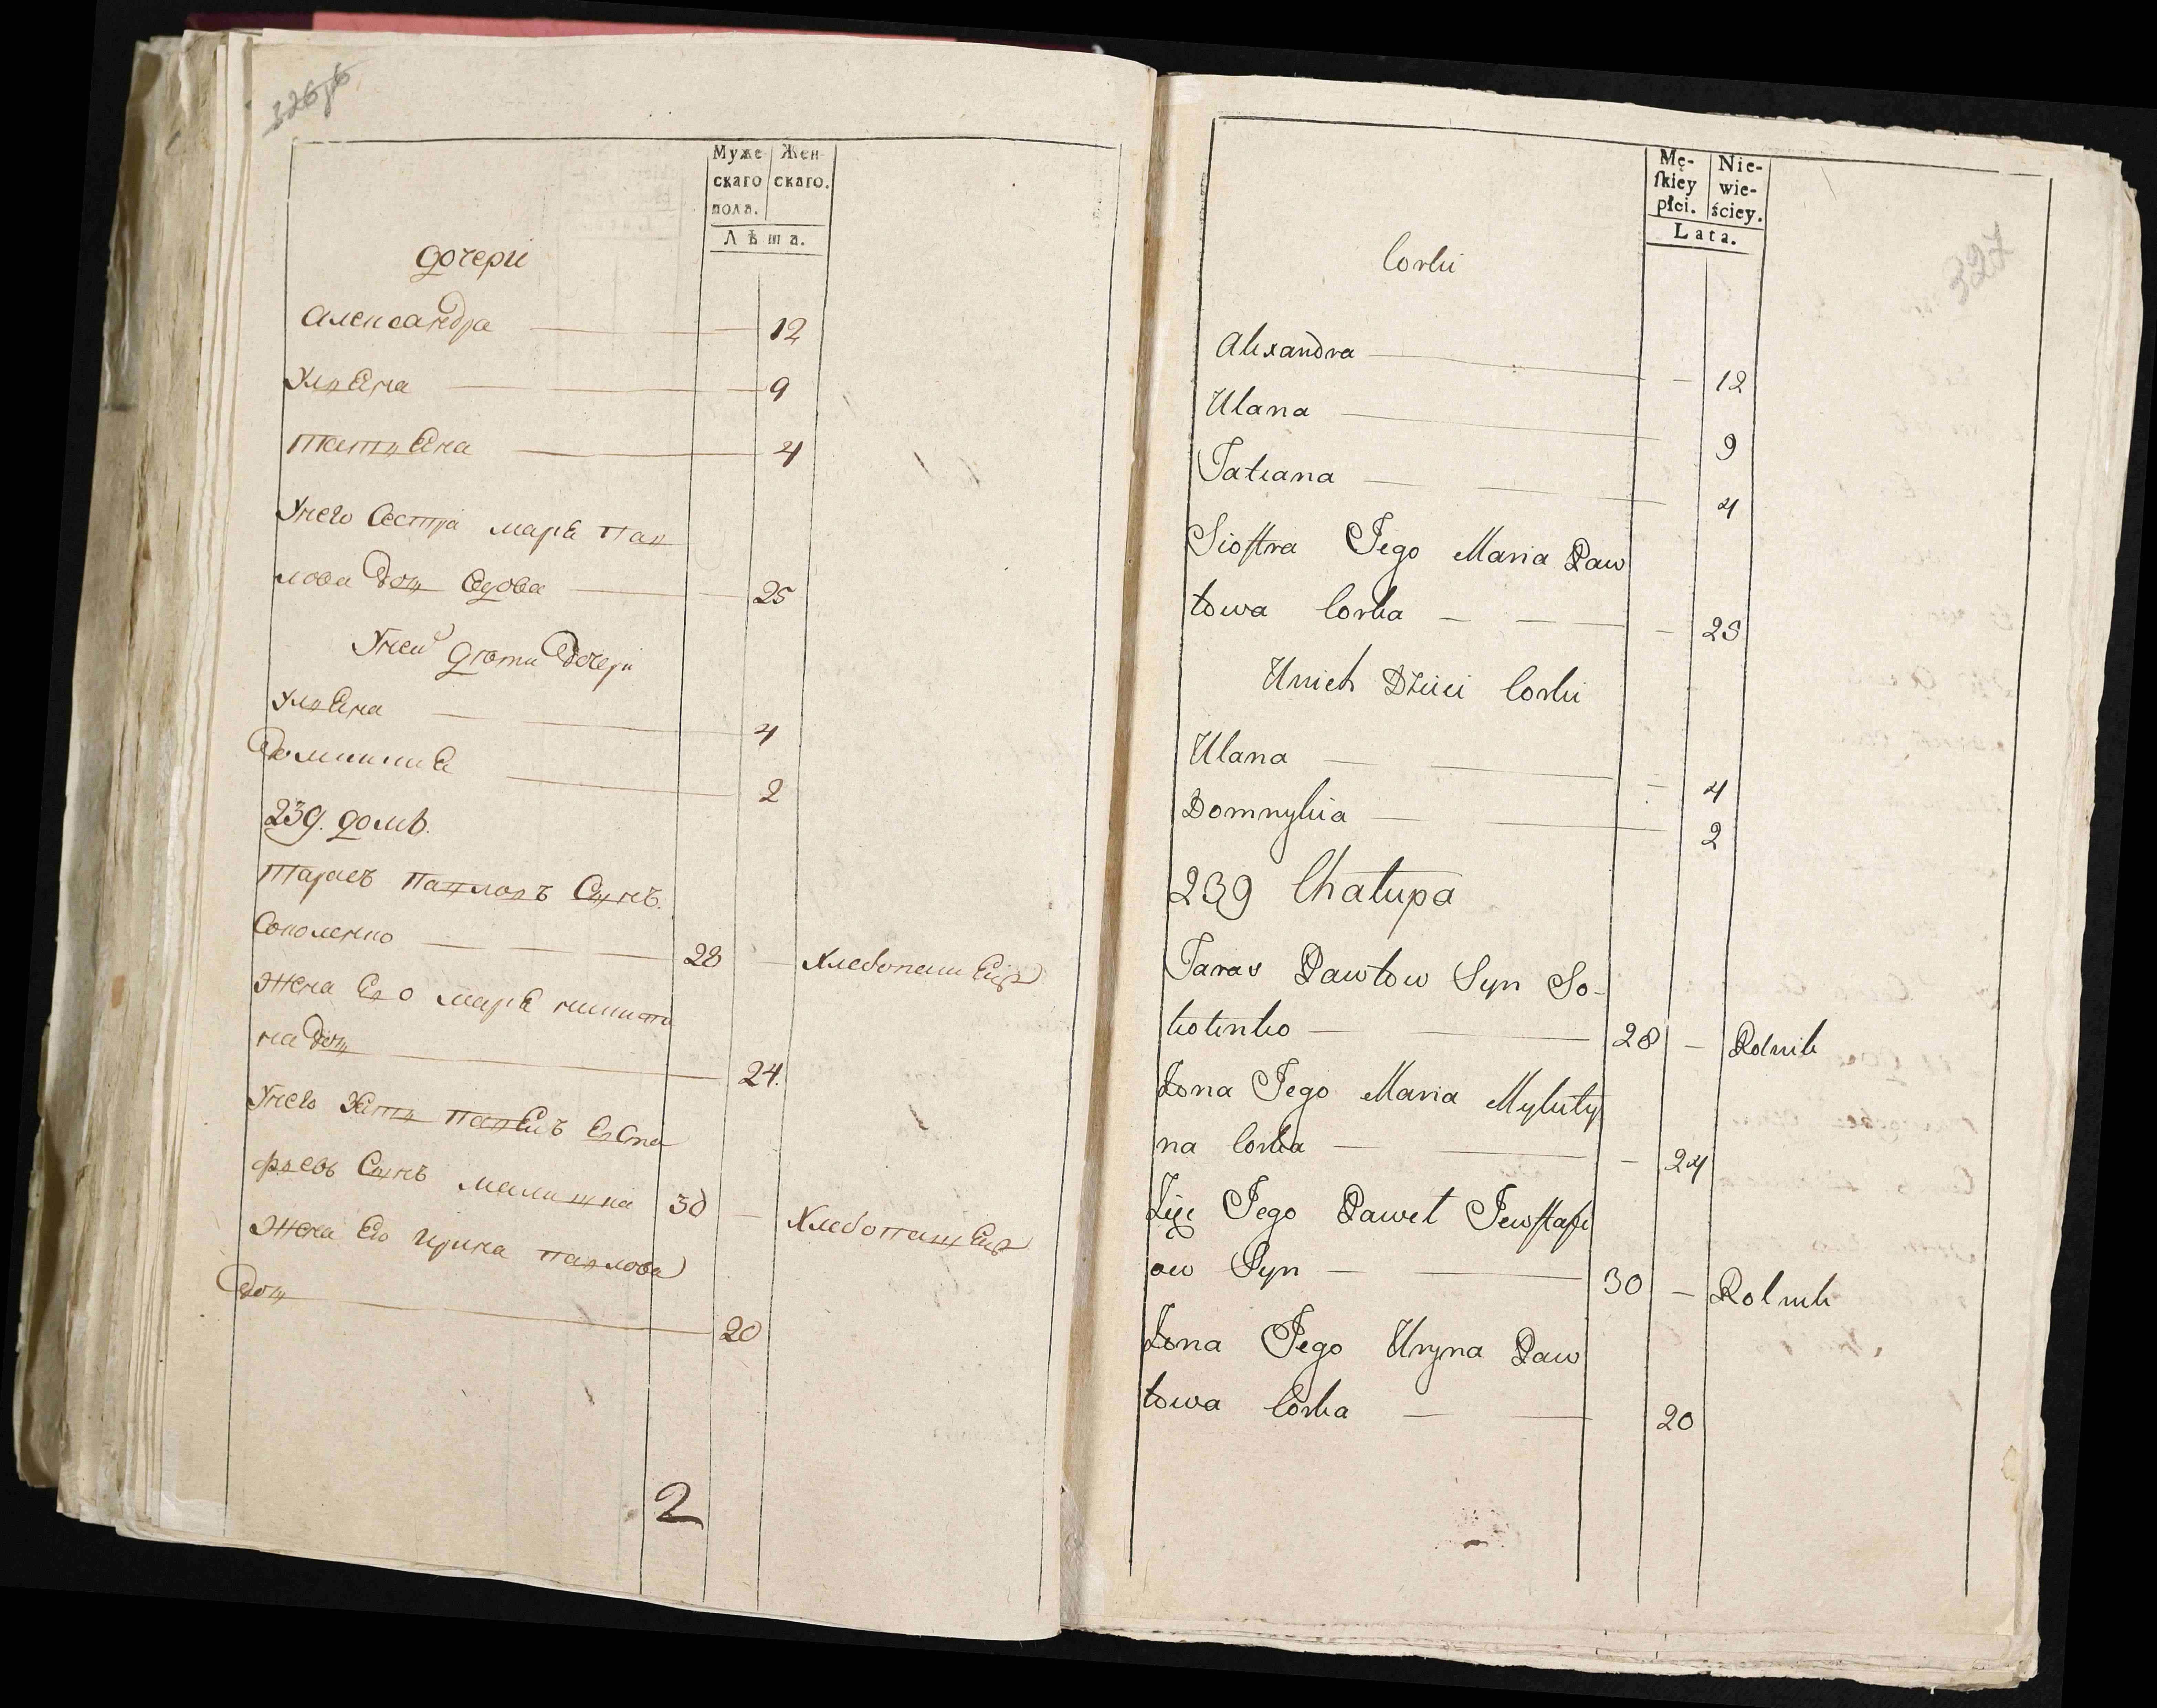 326 об
Муже-
скаго
пола.
Жен-
скаго.
Лѣта.
дочери
александра — 12
улиана — 9
татиана — 4
у него сестра мариа пав
лова доч вдова — 25
у ней дети дочери
улиана — 4
домникиа — 2
239. домъ.
тарасъ павловъ сынъ
соколенко — 28 — хлебопашец
жена его мариа никити
на доч — 24.
у него зять павелъ евста
фиевъ сынъ 30 — хлебопашец
жена его ирина павлова
доч — 20
2
Mę-
ſkiey
płci.
Nie-
wie-
ściey.
Lata.
327
Corki
Alexandra — 12
Ulana — 9
Tatiana — 4
Siostra Jego Maria Paw
łowa Corka — 25
U nich Dzieci Corki
Ulana — 4
Domnykia — 2
239 Chałupa
Taras Pawłow Syn So-
kołenko — 28 — Rolnik
Żona Jego Maria Mykity
na Corka — 24
Zięć Jego Paweł Jewstafi
ow Syn — 30 — Rolnik
Żona Jego Uryna Paw
łowa Corka — 20